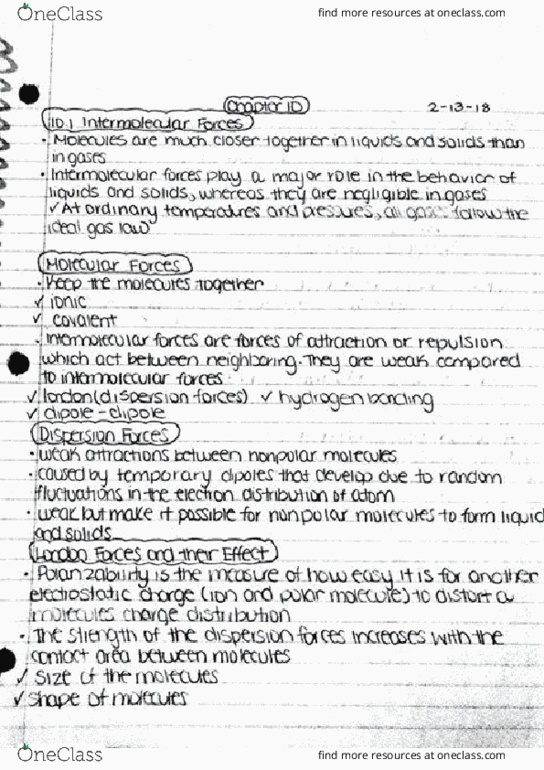 OneClass
find more resources at oneclass.com
Chapter 10
2-13-18
10.1 Intermolecular Forces
• Molecules are much closer together in liquids and solids than
in gases
• Intermolecular forces play a major role in the behavior of
liquids and solids, whereas they are negligible in gases
✓ At ordinary temperatures and pressures, all gases follow the
ideal gas law
Molecular Forces
• Keep the molecules together
✓ ionic
✓ covalent
• Intermolecular forces are forces of attraction or repulsion
which act between neighboring. They are weak compared
to intermolecular forces
✓ london (dispersion forces) ✓ hydrogen bonding
✓ dipole-dipole
Dispersion Forces
• weak attractions between nonpolar molecules
• caused by temporary dipoles that develop due to random
fluctuations in the election distribution of atom
• weak but make it possible for nonpolar molecules to form liquid
and solids
London Forces and their Effect
• Polarizability is the measure of how easy it is for another
electrostatic charge (ion and polar molecule) to distort a
molecules charge distribution
• The strength of the dispersion forces increases with the
contact area between molecules
✓ Size of the molecules
✓ shape of molecules
OneClass
find more resources at oneclass.com